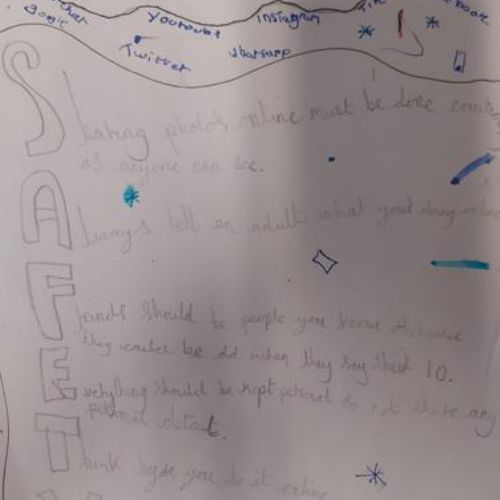 google
Youtoubt
Instagrun
Twitter
Sharing photo's online must be done
as anyone can see.
Always tell an adult what your doing
Friends should be people you
they be old when they say their 10.
Everything should be kept personal do not share any
personal
Think before you do it online